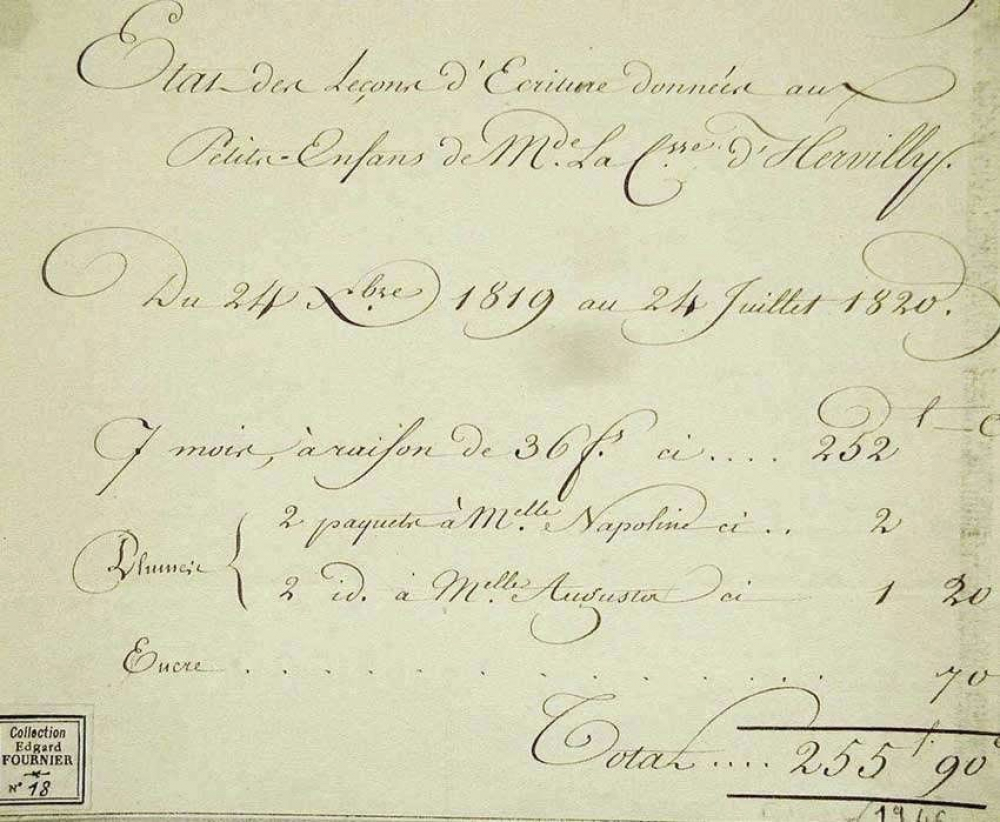 Etat des Leçons d'Ecriture données aux
Petits-Enfans de Mde. La Csse. d'Hervilly.
Du 24 Xbre. 1819 au 24 Juillet 1820.
f c
7 mois, à raison de 36 fs. ci.... 252
Plumes { 2 paquets à Melle. Napoline ci.. 2
2 id. à Melle. Augusta ci 1 20
Encre . . . . . . . . . . . 70
Total.... 255f. 90c
Collection
Edgard
FOURNIER
N° 18